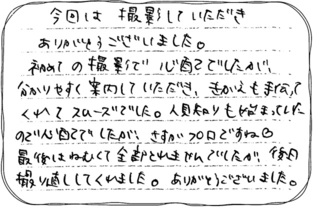 今回は 撮影していただき
ありがとうございました。
初めての撮影で心配でしたが、
分かりやすく案内していただき、きがえも手伝って
くれてスムーズでした。人見知りも始まってした
ので心配でしたが、さすがプロですね
最後はねむくて全部とれませんでしたが、後日
撮り直ししてくれました。ありがとうございました。